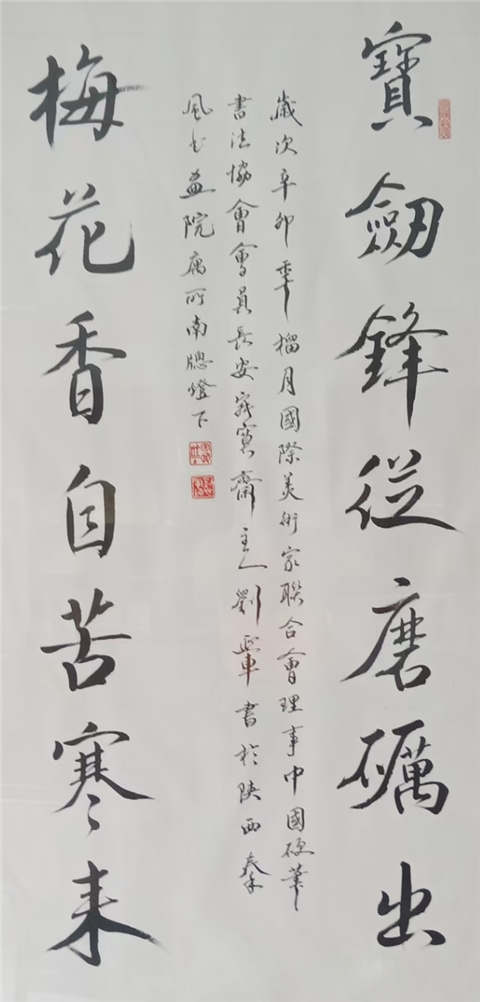 寶劔鋒從磨礪出
歲次辛卯季榴月國際美術家聯合會理事中國硬筆
書法協會會員長安寶齋主人劉書於陝西秦
風書畫院寓所南牕燈下
梅花香自苦寒来